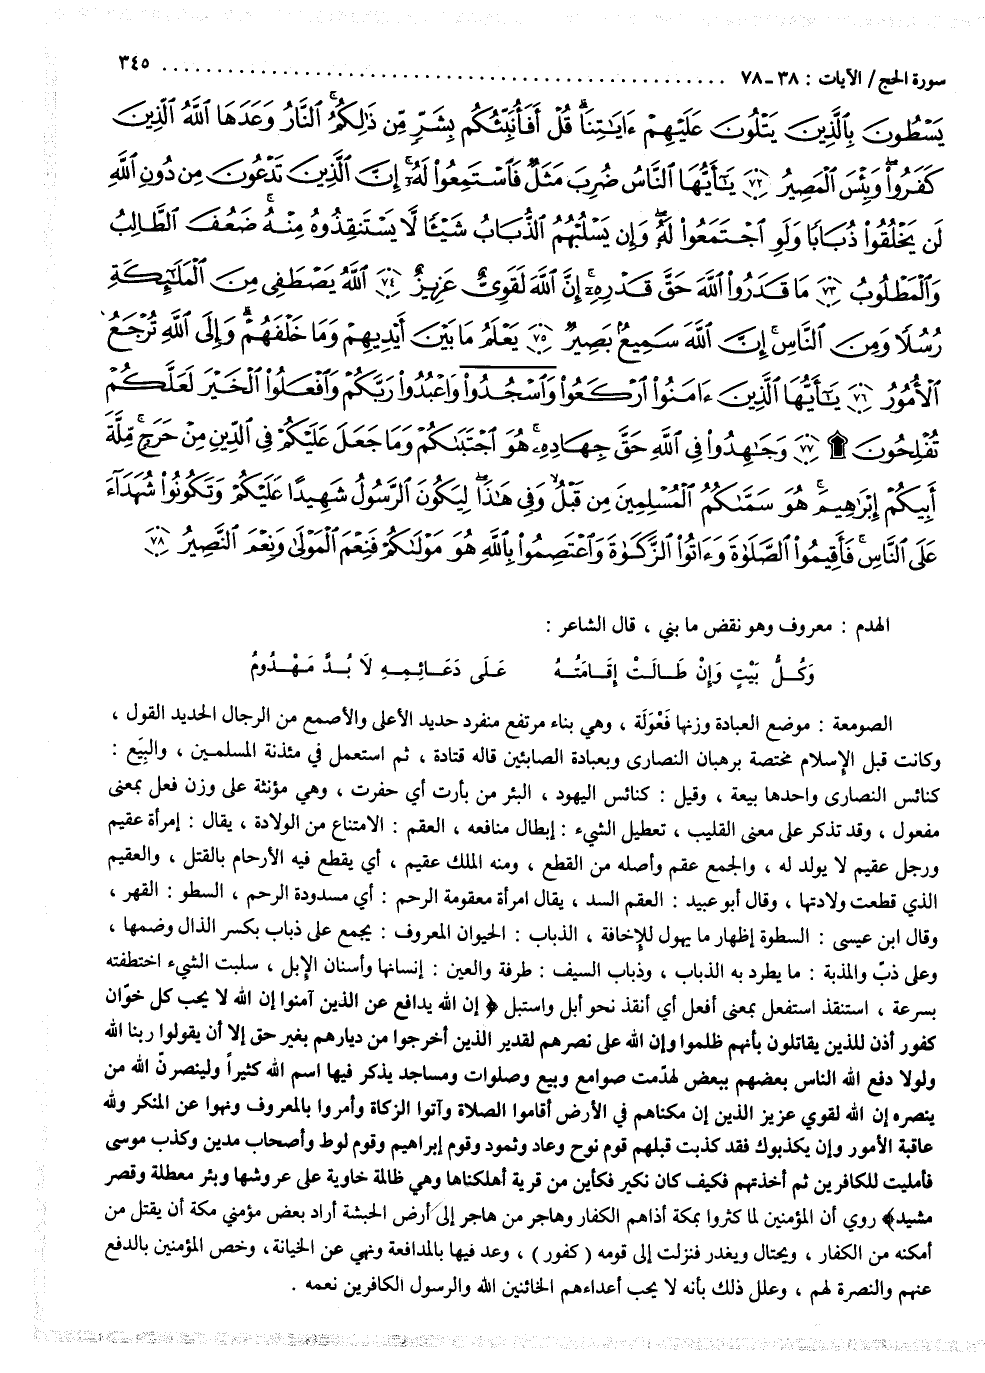 سورة الحج / الآيات : ٣٨ـ٧٨ ........................................................ ٣٤٥
يَسْطُونَ بِٱلَّذِينَ يَتْلُونَ عَلَيْهِمْ ءَايَٰتِنَا ۗ قُلْ أَفَأُنَبِّئُكُم بِشَرٍّ مِّن ذَٰلِكُمُ ۗ ٱلنَّارُ وَعَدَهَا ٱللَّهُ ٱلَّذِينَ
كَفَرُوا۟ ۖ وَبِئْسَ ٱلْمَصِيرُ ﴿٧٢﴾ يَٰٓأَيُّهَا ٱلنَّاسُ ضُرِبَ مَثَلٌ فَٱسْتَمِعُوا۟ لَهُۥٓ ۚ إِنَّ ٱلَّذِينَ تَدْعُونَ مِن دُونِ ٱللَّهِ
لَن يَخْلُقُوا۟ ذُبَابًا وَلَوِ ٱجْتَمَعُوا۟ لَهُۥ ۖ وَإِن يَسْلُبْهُمُ ٱلذُّبَابُ شَيْـًٔا لَّا يَسْتَنقِذُوهُ مِنْهُ ۚ ضَعُفَ ٱلطَّالِبُ
وَٱلْمَطْلُوبُ ﴿٧٣﴾ مَا قَدَرُوا۟ ٱللَّهَ حَقَّ قَدْرِهِۦٓ ۗ إِنَّ ٱللَّهَ لَقَوِىٌّ عَزِيزٌ ﴿٧٤﴾ ٱللَّهُ يَصْطَفِى مِنَ ٱلْمَلَٰٓئِكَةِ
رُسُلًا وَمِنَ ٱلنَّاسِ ۚ إِنَّ ٱللَّهَ سَمِيعٌۢ بَصِيرٌ ﴿٧٥﴾ يَعْلَمُ مَا بَيْنَ أَيْدِيهِمْ وَمَا خَلْفَهُمْ ۗ وَإِلَى ٱللَّهِ تُرْجَعُ
ٱلْأُمُورُ ﴿٧٦﴾ يَٰٓأَيُّهَا ٱلَّذِينَ ءَامَنُوا۟ ٱرْكَعُوا۟ وَٱسْجُدُوا۟ وَٱعْبُدُوا۟ رَبَّكُمْ وَٱفْعَلُوا۟ ٱلْخَيْرَ لَعَلَّكُمْ
تُفْلِحُونَ ۩ ﴿٧٧﴾ وَجَٰهِدُوا۟ فِى ٱللَّهِ حَقَّ جِهَادِهِۦ ۚ هُوَ ٱجْتَبَىٰكُمْ وَمَا جَعَلَ عَلَيْكُمْ فِى ٱلدِّينِ مِنْ حَرَجٍ ۚ مِّلَّةَ
أَبِيكُمْ إِبْرَٰهِيمَ ۚ هُوَ سَمَّىٰكُمُ ٱلْمُسْلِمِينَ مِن قَبْلُ وَفِى هَٰذَا لِيَكُونَ ٱلرَّسُولُ شَهِيدًا عَلَيْكُمْ وَتَكُونُوا۟ شُهَدَآءَ
عَلَى ٱلنَّاسِ ۚ فَأَقِيمُوا۟ ٱلصَّلَوٰةَ وَءَاتُوا۟ ٱلزَّكَوٰةَ وَٱعْتَصِمُوا۟ بِٱللَّهِ هُوَ مَوْلَىٰكُمْ ۖ فَنِعْمَ ٱلْمَوْلَىٰ وَنِعْمَ ٱلنَّصِيرُ ﴿٧٨﴾
الهدم : معروف وهو نقض ما بني ، قال الشاعر :
وَكُـلُّ بَيْتٍ وَإِنْ طَـالَـتْ إِقَـامَتُـهُ عَـلَى دَعَـائِـمِـهِ لَا بُـدَّ مَـهْـدُومُ
الصومعة : موضع العبادة وزنها فَعْوَلَة ، وهي بناء مرتفع منفرد حديد الأعلى والأصمع من الرجال الحديد القول ،
وكانت قبل الإسلام مختصة برهبان النصارى وبعبادة الصابئين قاله قتادة ، ثم استعمل في مئذنة المسلمين ، والبِيَع :
كنائس النصارى واحدها بيعة ، وقيل : كنائس اليهود ، البئر من بأرت أي حفرت ، وهي مؤنثة على وزن فعل بمعنى
مفعول ، وقد تذكر على معنى القليب ، تعطيل الشيء : إبطال منافعه ، العقم : الامتناع من الولادة ، يقال : إمرأة عقيم
ورجل عقيم لا يولد له ، والجمع عقم وأصله من القطع ، ومنه الملك عقيم ، أي يقطع فيه الأرحام بالقتل ، والعقيم
الذي قطعت ولادتها ، وقال أبو عبيد : العقم السد ، يقال امرأة معقومة الرحم : أي مسدودة الرحم ، السطو : القهر ،
وقال ابن عيسى : السطوة إظهار ما يهول للإخافة ، الذباب : الحيوان المعروف : يجمع على ذباب بكسر الذال وضمها ،
وعلى ذبّ والمذبة : ما يطرد به الذباب ، وذباب السيف : طرفة والعين : إنسانها وأسنان الإبل ، سلبت الشيء اختطفته
بسرعة ، استنقذ استفعل بمعنى أفعل أي أنقذ نحو أبل واستبل ﴿ إن الله يدافع عن الذين آمنوا إن الله لا يحب كل خوّان
كفور أذن للذين يقاتلون بأنهم ظلموا وإن الله على نصرهم لقدير الذين أخرجوا من ديارهم بغير حق إلا أن يقولوا ربنا الله
ولولا دفع الله الناس بعضهم ببعض لهدّمت صوامع وبيع وصلوات ومساجد يذكر فيها اسم الله كثيراً ولينصرنّ الله من
ينصره إن الله لقوي عزيز الذين إن مكناهم في الأرض أقاموا الصلاة وآتوا الزكاة وأمروا بالمعروف ونهوا عن المنكر ولله
عاقبة الأمور وإن يكذبوك فقد كذبت قبلهم قوم نوح وعاد وثمود وقوم إبراهيم وقوم لوط وأصحاب مدين وكذب موسى
فأمليت للكافرين ثم أخذتهم فكيف كان نكير فكأين من قرية أهلكناها وهي ظالمة خاوية على عروشها وبئر معطلة وقصر
مشيد﴾ روي أن المؤمنين لما كثروا بمكة أذاهم الكفار وهاجر من هاجر إلى أرض الحبشة أراد بعض مؤمني مكة أن يقتل من
أمكنه من الكفار ، ويحتال ويغدر فنزلت إلى قومه ( كفور ) ، وعد فيها بالمدافعة ونهي عن الخيانة، وخص المؤمنين بالدفع
عنهم والنصرة لهم ، وعلل ذلك بأنه لا يحب أعداءهم الخائنين الله والرسول الكافرين نعمه .